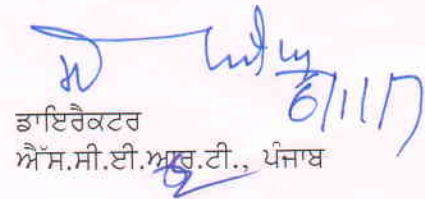 6/11/17
ਡਾਇਰੈਕਟਰ
ਐੱਸ.ਸੀ.ਈ.ਆਰ.ਟੀ., ਪੰਜਾਬ